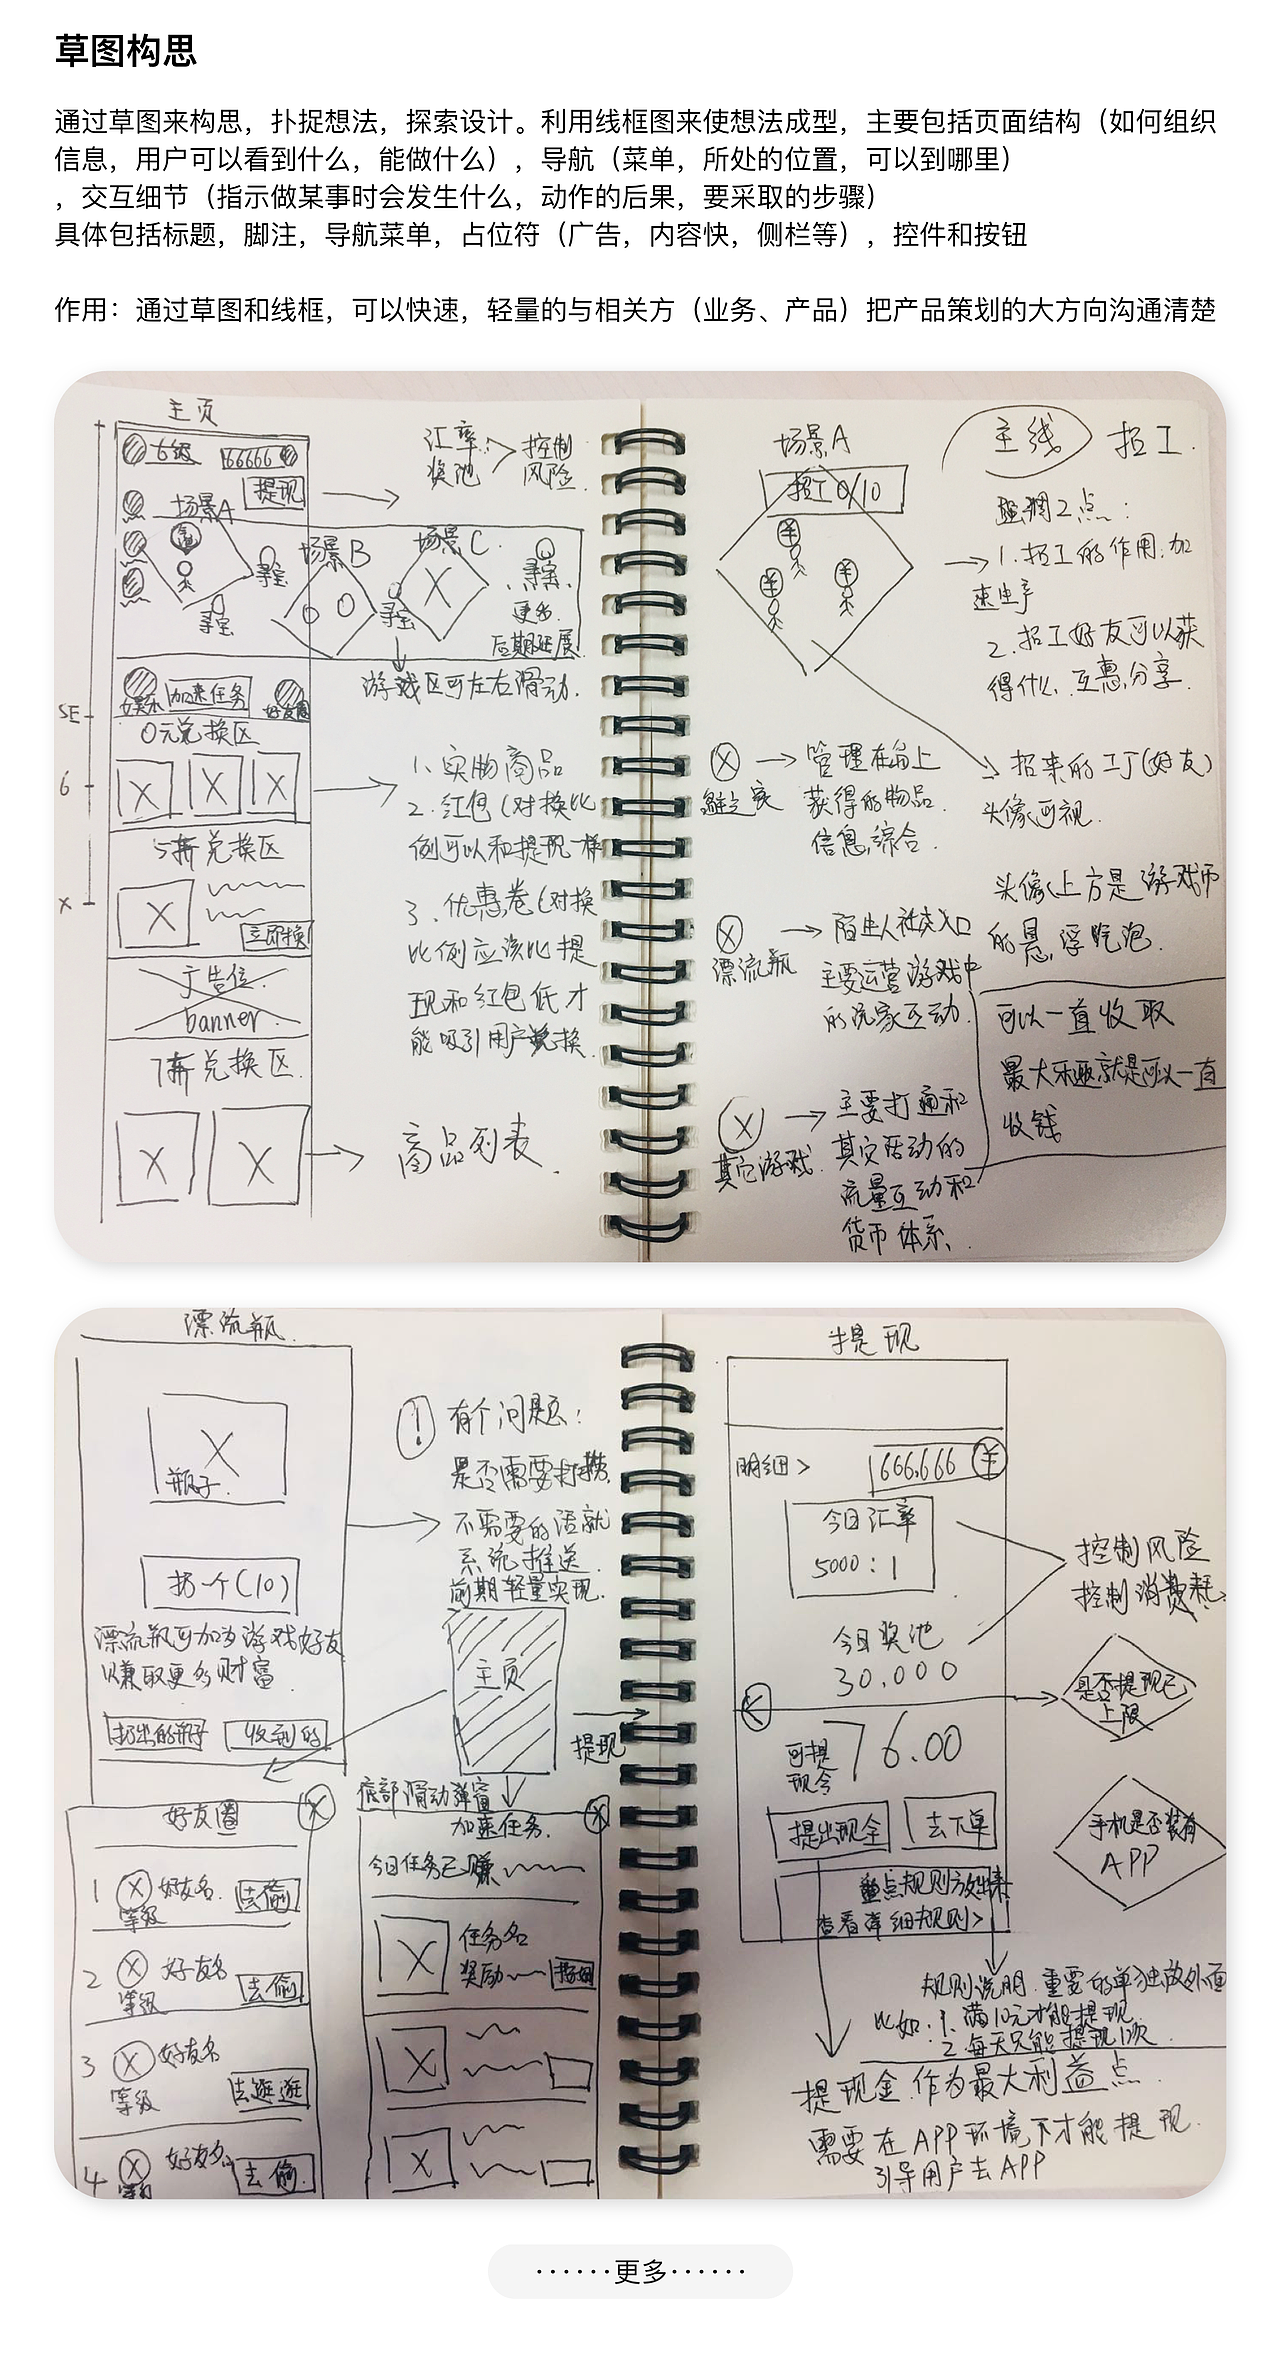 草图构思
通过草图来构思，扑捉想法，探索设计。利用线框图来使想法成型，主要包括页面结构（如何组织
信息，用户可以看到什么，能做什么），导航（菜单，所处的位置，可以到哪里）
，交互细节（指示做某事时会发生什么，动作的后果，要采取的步骤）
具体包括标题，脚注，导航菜单，占位符（广告，内容快，侧栏等），控件和按钮
作用：通过草图和线框，可以快速，轻量的与相关方（业务、产品）把产品策划的大方向沟通清楚
主页
6级 66666
提现
场景A
场景B
场景C
寻宝
寻宝
寻宝
寻宝
更多
后期延展
汇率
奖池
控制
风险
游戏区可左右滑动.
加速任务
好友圈
SE
6
X
0元兑换区
5折兑换区
立即换
广告位
banner
7折兑换区
1、实物商品
2.红包(对换比
例可以和提现一样
3、优惠卷(对换
比例应该比提
现和红包低才
能吸引用户兑换.
商品列表.
场景A
招工0/10
主线 招工.
强调2点:
1.招工的作用.加
速生产
2.招工好友可以获
得什么.互惠分享.
招来的工丁(好友)
头像可视.
头像上方是游戏币
的悬浮气泡.
可以一直收取
最大乐趣就是可以一直
收钱
管理在岛上
获得的物品
信息,综合.
漂流瓶
陌生人社交入口
主要运营游戏中
的玩家互动.
其它游戏.
主要打通和
其它活动的
流量互动和
货币体系、
漂流瓶.
瓶子.
扔一个(10)
漂流瓶可加为游戏好友
以赚取更多财富.
扔出的瓶子
收到的
! 有个问题:
是否需要打捞.
不需要的话就
系统推送.
前期轻量实现.
主页
提现
底部滑动弹窗
好友圈
1 好友名. 去偷
等级
2 好友名 去偷
等级
3 好友名
等级 去逛逛
4 好友名 去偷.
加速任务.
今日任务已赚
任务名
奖励
提现
明细> 666.666 ¥
今日汇率
5000:1
今日奖池
30.000
可提
现金
76.00
提出现金
去下单
重点规则放出来
查看详细规则>
控制风险
控制消耗
是否提现已
上限
手机是否装有
APP
规则说明.重要的单独放外面
比如:1.满10元才能提现
2.每天只能提现1次
提现金.作为最大利益点.
需要在APP环境下才能提现.
引导用户去APP
······更多······